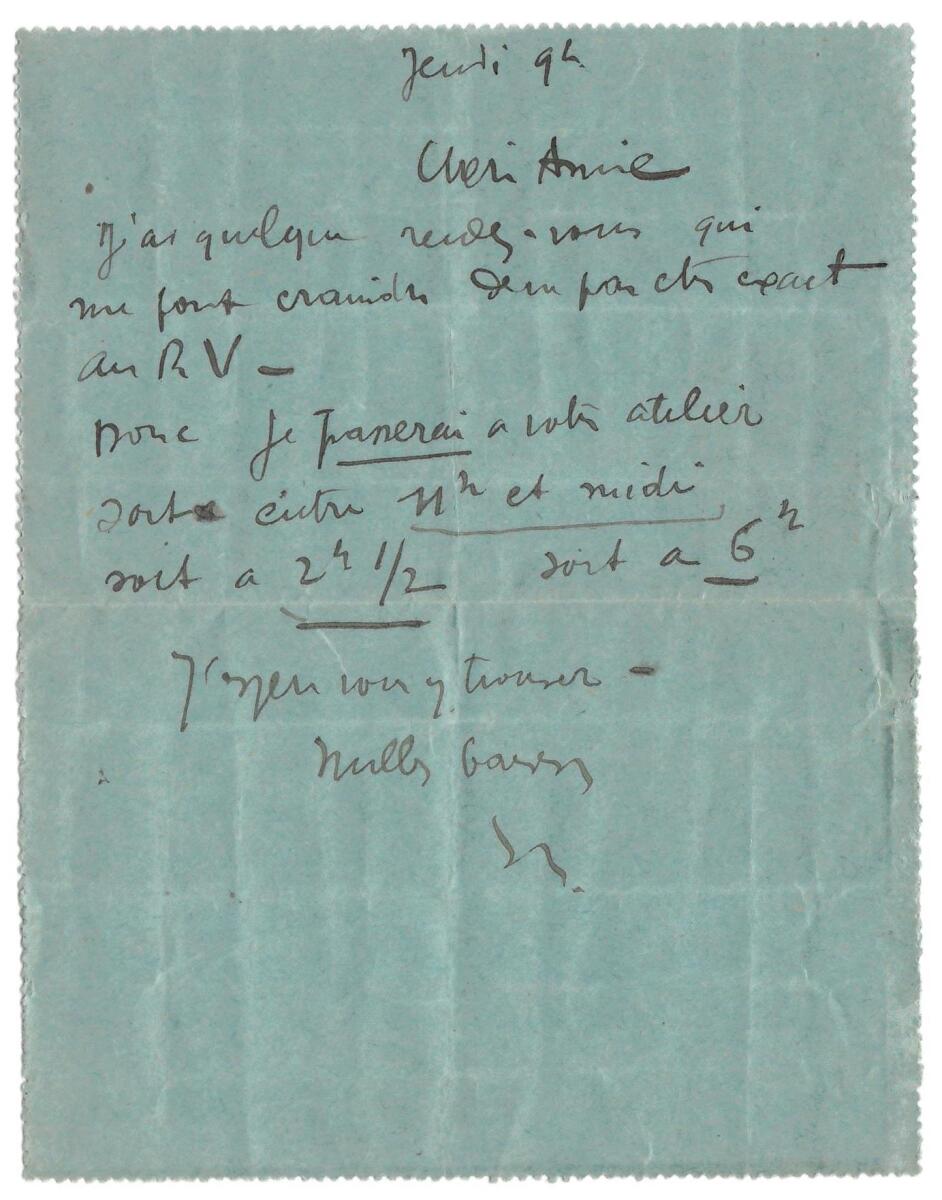 Jeudi 9h
Chère Amie
J'ai quelques rendez-vous qui
me font craindre de ne pas être exact
au RV –
Donc je passerai a votre atelier
soit entre 11h et midi
soit a 2h 1/2 soit a 6h
J'espère vous y trouver –
Milles baisers